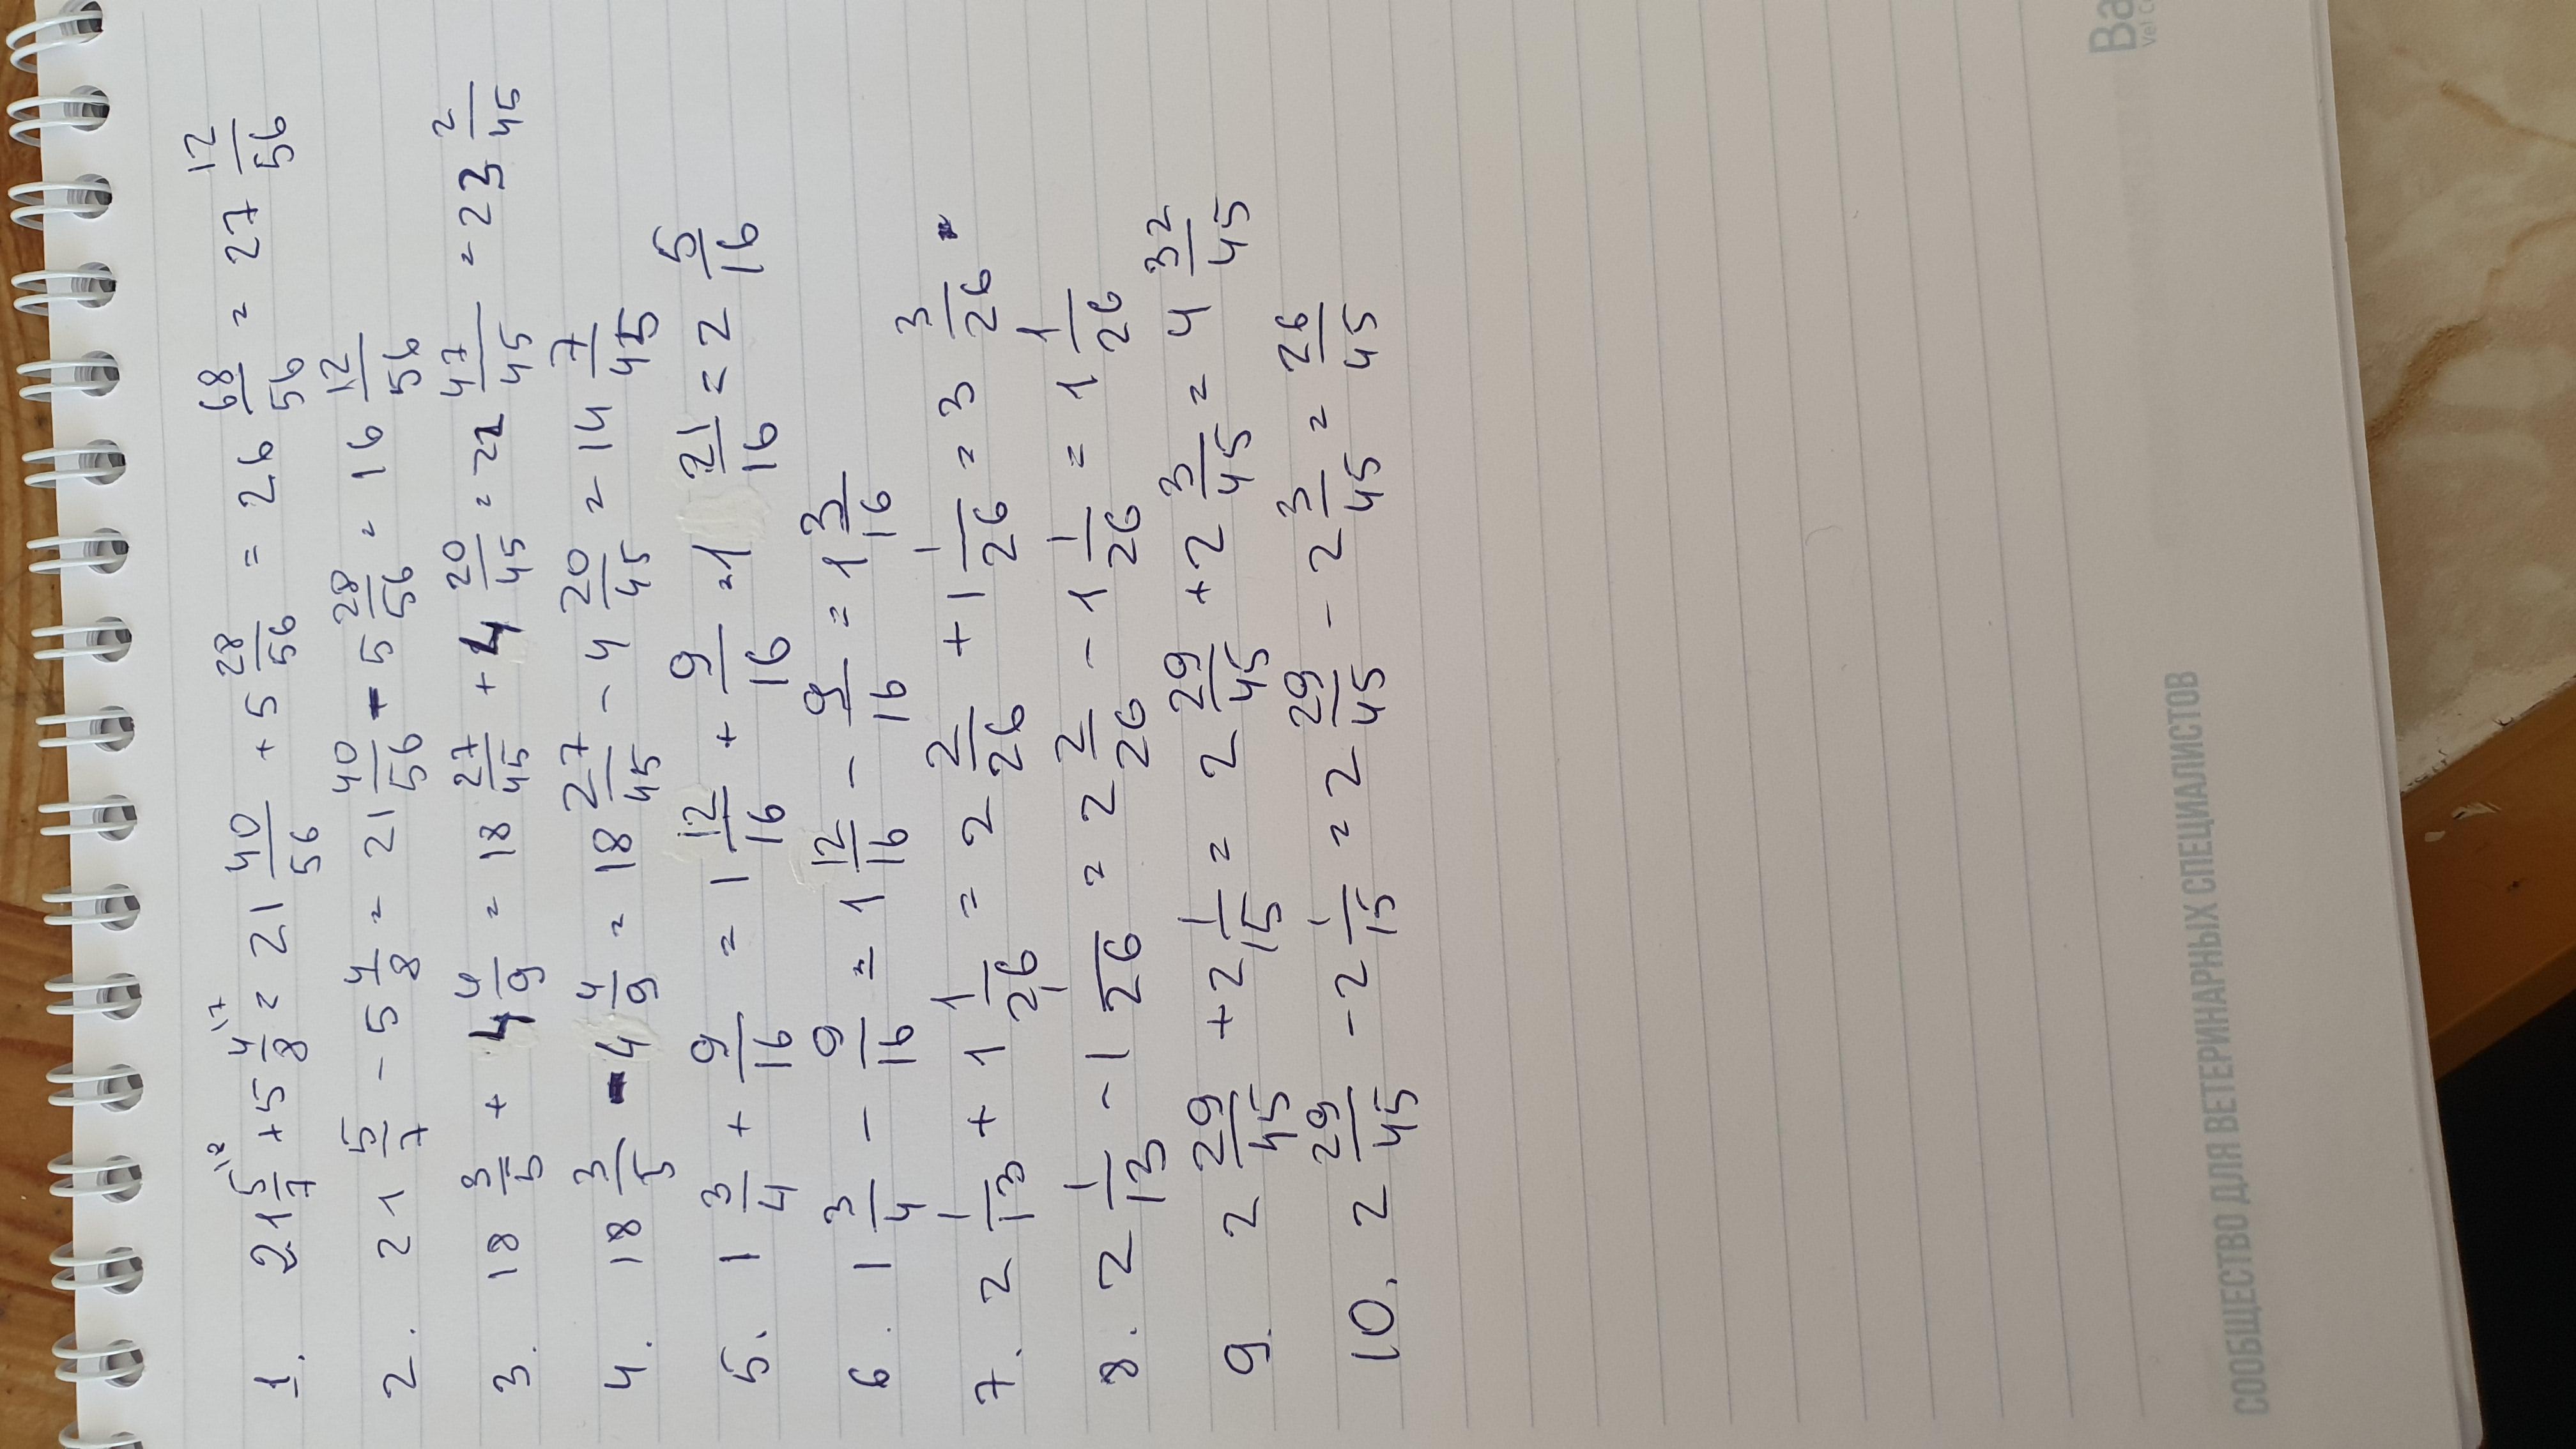 1. 21 5/7 + 5 4/8 = 21 40/56 + 5 28/56 = 26 68/56 = 27 12/56
2. 21 5/7 - 5 4/8 = 21 40/56 - 5 28/56 = 16 12/56
3. 18 3/5 + 4 4/9 = 18 27/45 + 4 20/45 = 22 47/45 = 23 2/45
4. 18 3/5 - 4 4/9 = 18 27/45 - 4 20/45 = 14 7/45
5. 1 3/4 + 9/16 = 1 12/16 + 9/16 = 1 21/16 = 2 5/16
6. 1 3/4 - 9/16 = 1 12/16 - 9/16 = 1 3/16
7. 2 1/13 + 1 1/26 = 2 2/26 + 1 1/26 = 3 3/26
8. 2 1/13 - 1 /26 = 2 2/26 - 1 1/26 = 1 1/26
9. 2 29/45 + 2 1/15 = 2 29/45 + 2 3/45 = 4 32/45
10. 2 29/45 - 2 1/15 = 2 29/45 - 2 3/45 = 26/45
СООБЩЕСТВО ДЛЯ ВЕТЕРИНАРНЫХ СПЕЦИАЛИСТОВ